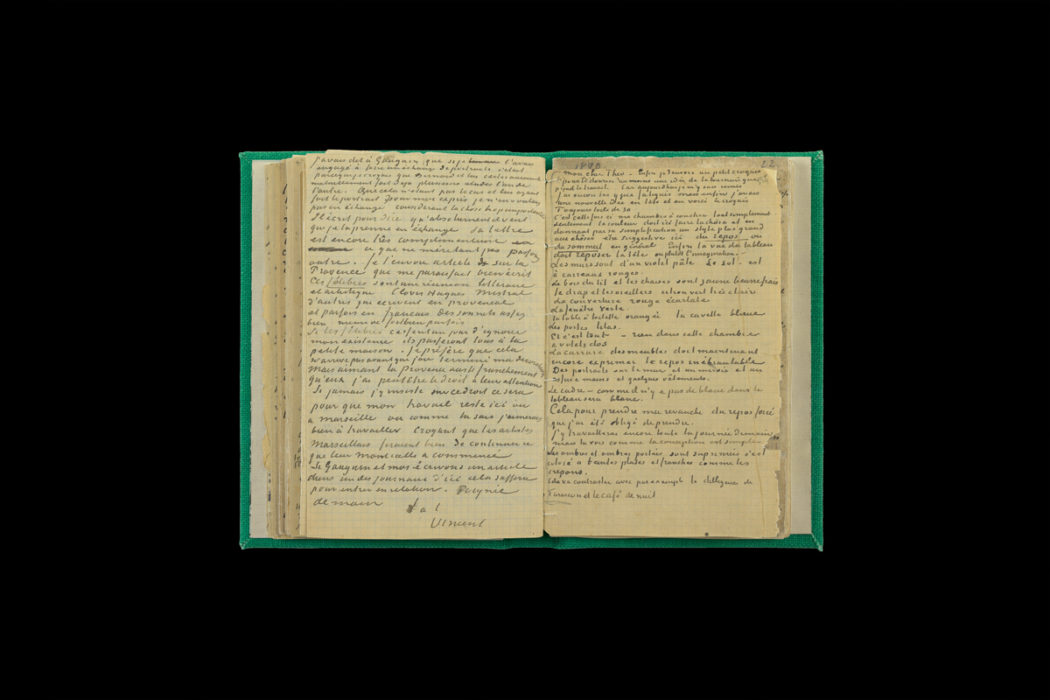 J'avais dit à Gauguin que si je l'avais
engagé à faire un échange de portraits c'était
parceque je croyais que Bernard et lui certainement
mutuellement fait déjà plusieurs études l'un de
l'autre. Que cela n'étant pas le cas et lui ayant
fait le portrait pour moi exprès je n'en voulais
pas en échange considérant la chose trop importante
Il écrit pour dire qu'absolument il veut
que je la prenne en échange sa lettre
est encore très complimenteuse
ce que ne méritant pas passons
outre. Je t'envoie article sur la
Provence que me paraissait bien écrit
Ces félibres sont une réunion littéraire
et artistique Clovis Hugues Mistral
d'autres qui écrivent en provencal
et parfois en francais des sonnets assez
bien même fort bien parfois
Si les félibres cessent un jour d'ignorer
mon existence ils passeront tous à la
petite maison. Je préfère que cela
n'arrive pas avant que j'aie terminé ma décoration
Mais aimant la Provence aussi franchement
qu'eux j'ai peutêtre le droit à leur attention
Si jamais j'y insiste sur ce droit ce sera
pour que mon travail reste ici ou
à marseille où comme tu sais j'aimerais
bien à travailler Croyant que les artistes
Marseillais feraient bien de continuer ce
que leur Monticelli a commencé
Si Gauguin et moi écrivons un article
dans un des journaux d'ici cela suffira
pour entrer en relation. Poignée
de main t. à t.
Vincent
22
Mon cher Théo – Enfin je t'envoie un petit croquis
pour te donner au moins une idée de la tournure que
prend le travail. Car aujourd'hui je m'y suis remis
J'ai encore les yeux fatigués mais enfin j'avais
une nouvelle idée en tête et en voici le croquis
Toujours toile de 30
C'est cette fois ci ma chambre à coucher tout simplement
seulement la couleur doit ici faire la chose et en
donnant par sa simplification un style plus grand
aux choses être suggestive ici du repos ou
du sommeil en général Enfin la vue du tableau
doit reposer la tête ou plutôt l'imagination.
Les murs sont d'un violet pâle Le sol – est
à carreaux rouges.
Le bois du lit et les chaises sont jaune beurre frais
le drap et les oreillers citron vert très clair
La couverture rouge écarlate
La fenêtre verte
la table à toilette orangée la cuvette bleue
Les portes lilas.
Et c'est tout – rien dans cette chambre
à volets clos
La carrure des meubles doit maintenant
encore exprimer le repos inébranlable
Des portraits sur le mur et un miroir et un
essuie mains et quelques vêtements.
Le cadre – comme il n'y a pas de blanc dans le
tableau sera blanc.
Cela pour prendre ma revanche du repos forcé
que j'ai été obligé de prendre.
J'y travaillerai encore toute la journée demain
mais tu vois comme la conception est simple
Les ombres et ombres portées sont supprimées c'est
coloré à teintes plates et franches comme les
crepons.
Cela va contraster avec par exemple la diligence de
Tarascon et le café de nuit